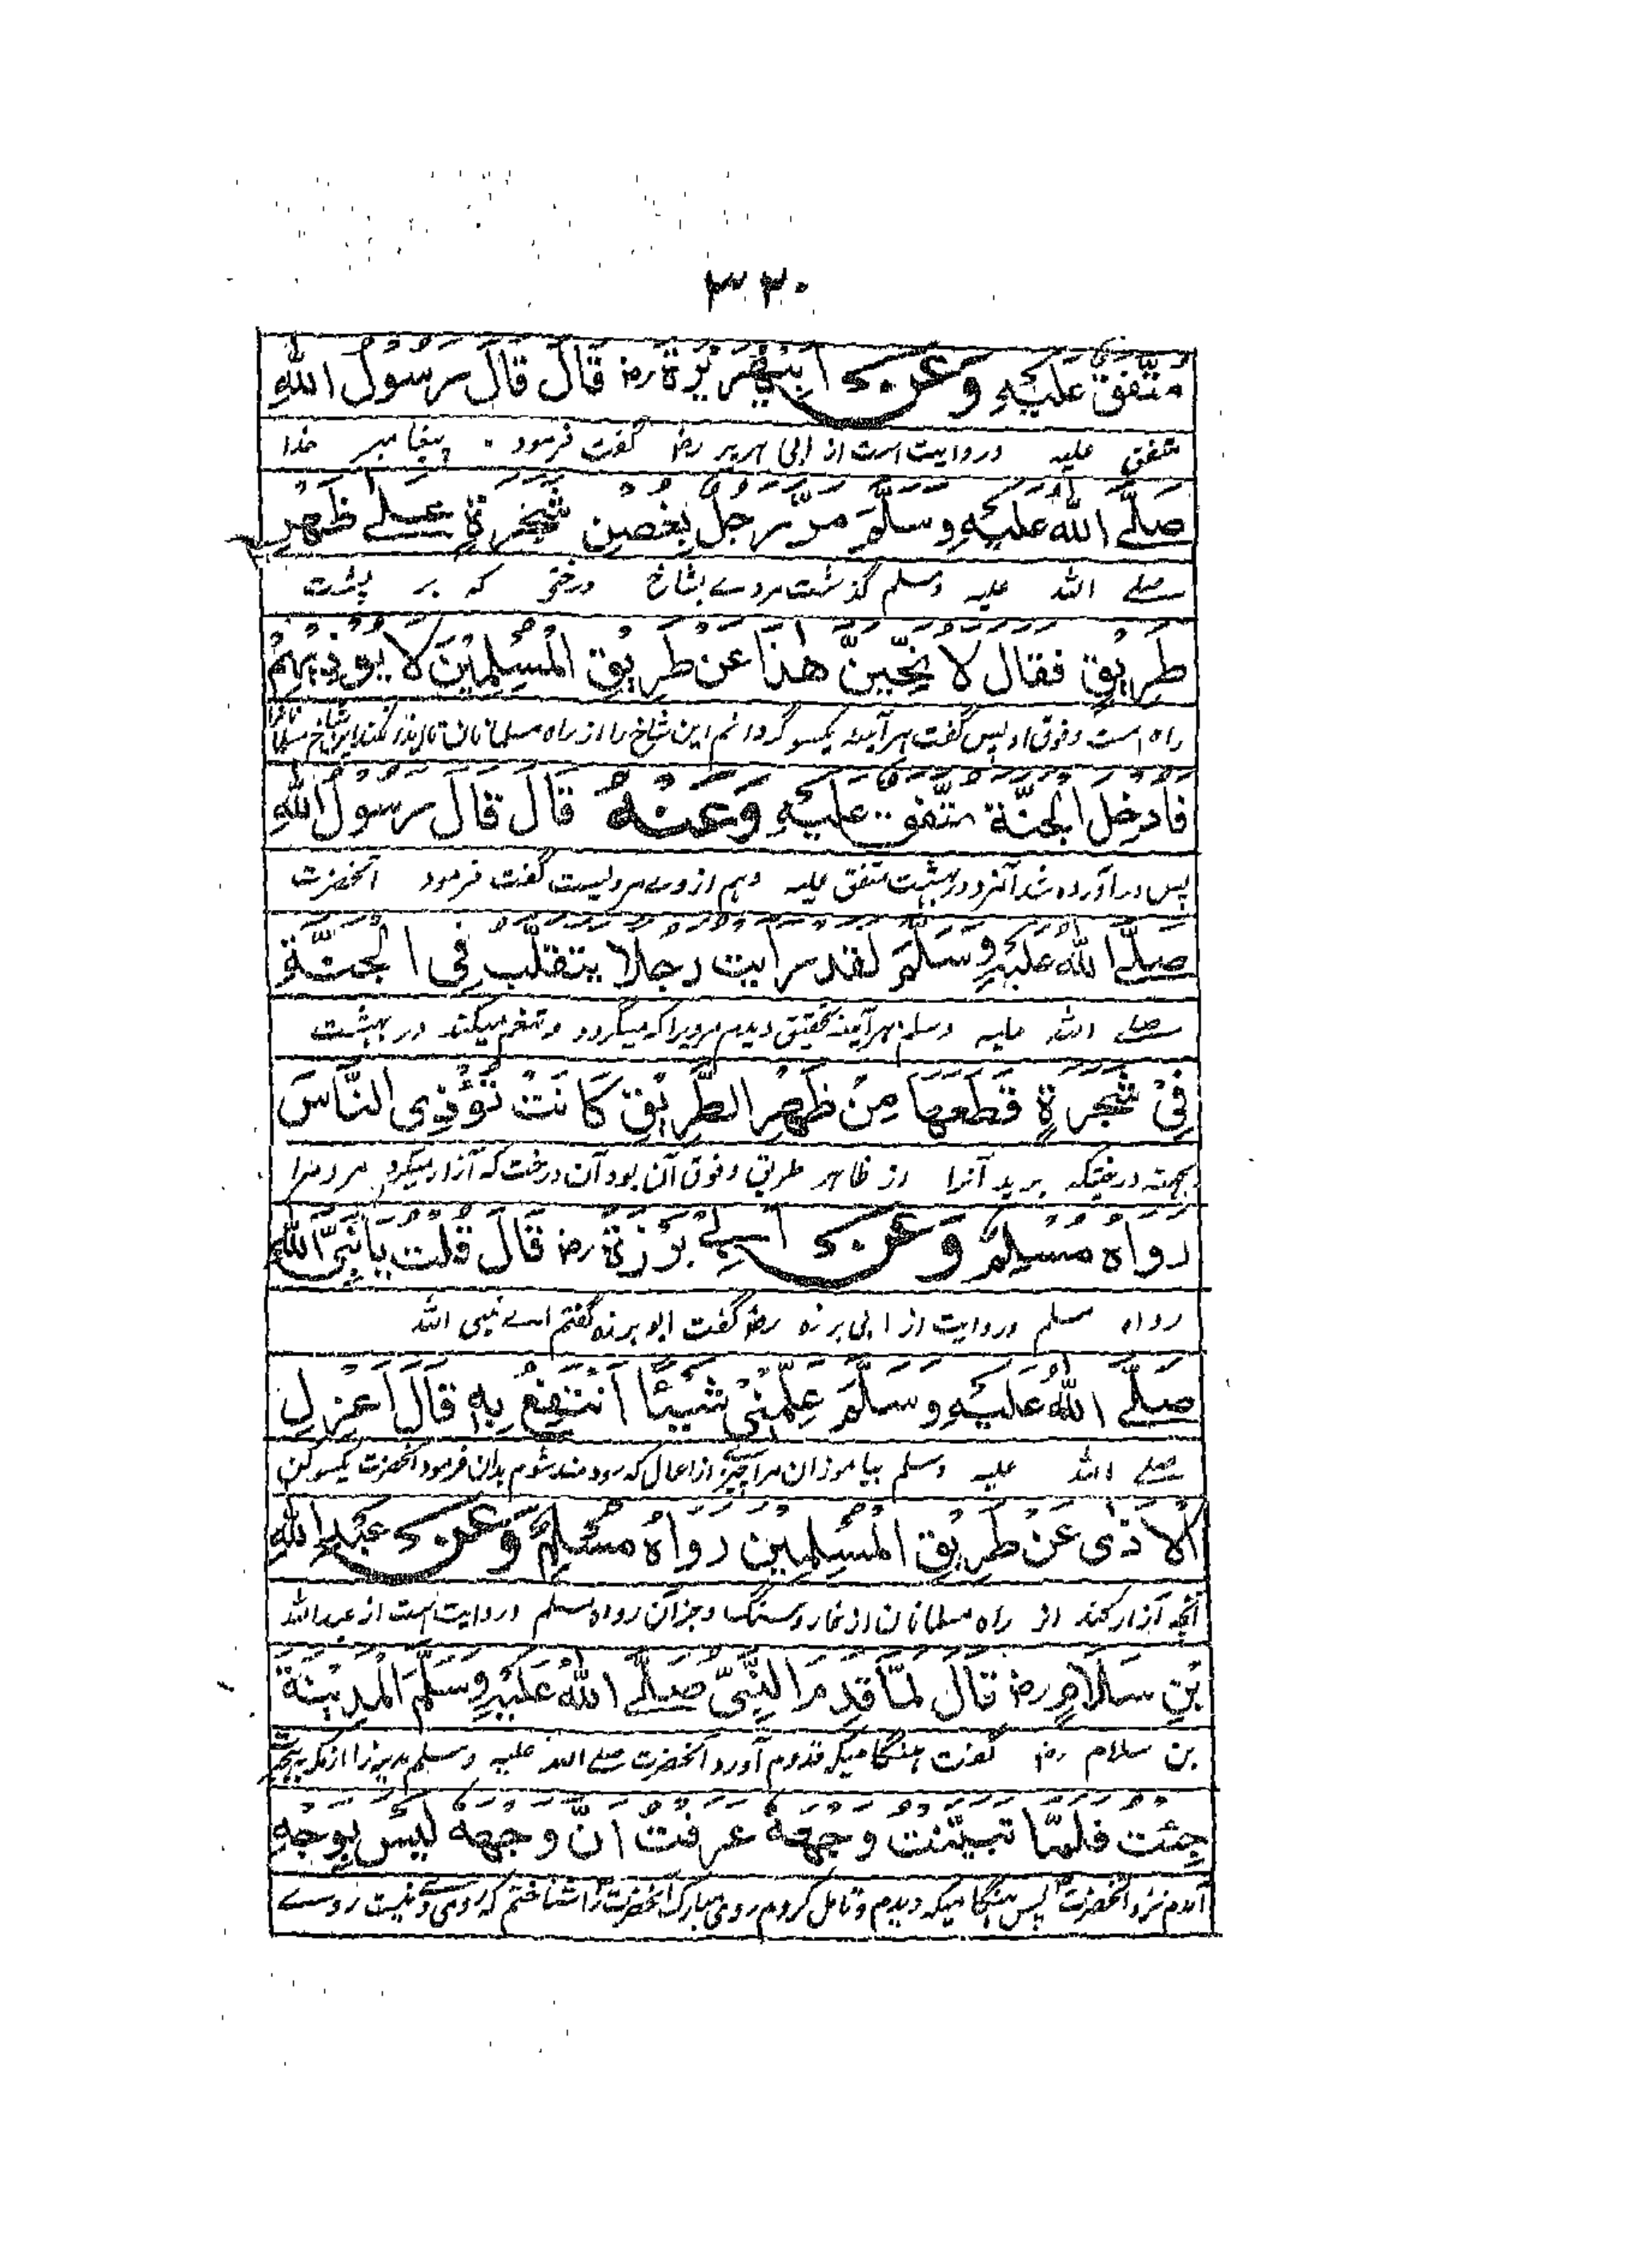 ۳۳۰
مُتَّفَقٌ عَلَيْهِ وَعَنْ اَبِيْ هُرَيْرَةَ رض قَالَ قَالَ رَسُوْلُ اللهِ
متفق علیه وروایت است از ابی هریره رض گفت فرمود پیغامبر خدا
صَلَّے اللهُ عَلَيْهِ وَسَلَّمَ مَرَّ رَجُلٌ بِغُصْنِ شَجَرَةٍ عَلٰے ظَهْرِ
صلے الله علیه وسلم گذشت مردے بشاخ درختی که بر پشت
طَرِيْقٍ فَقَالَ لَاُنَحِّيَنَّ هٰذَا عَنْ طَرِيْقِ الْمُسْلِمِيْنَ لَا يُؤْذِيْهِمْ
راه است وفوق او پس گفت هرآینه یکسو گردانم این شاخ را از راه مسلمانان تا ایذا نکند این شاخ
فَاُدْخِلَ الْجَنَّةَ مُتَّفَقٌ عَلَيْهِ وَعَنْهُ قَالَ قَالَ رَسُوْلُ اللهِ
پس درآورده شد آنمرد در بهشت متفق علیه وهم از وے مرویست گفت فرمود آنحضرت
صَلَّے اللهُ عَلَيْهِ وَسَلَّمَ لَقَدْ رَاَيْتُ رَجُلًا يَتَقَلَّبُ فِى الْجَنَّةِ
صلے الله علیه وسلم هرآینه بتحقیق دیدم مردیرا که میگردد وتنعم میکند در بهشت
فِيْ شَجَرَةٍ قَطَعَهَا مِنْ ظَهْرِ الطَّرِيْقِ كَانَتْ تُؤْذِى النَّاسَ
بجهته درختیکه برید آنرا از ظاهر طریق وفوق آن بود آن درخت که آزار میکرد مردمرا
رَوَاهُ مُسْلِمٌ وَعَنْ اَبِے بَرْزَةَ رض قَالَ قُلْتُ يَا نَبِيَّ اللهِ
رواه مسلم وروایت از ابی برزه رض گفت ابو برزه گفتم اے نبی الله
صَلَّے اللهُ عَلَيْهِ وَسَلَّمَ عَلِّمْنِىْ شَيْئًا اَنْتَفِعُ بِهٖ قَالَ اَعْزِلِ
صلے الله علیه وسلم بیاموزان مرا چیزے از اعمال که سودمند شوم بدان فرمود آنحضرت یکسو کن
الْاَذٰى عَنْ طَرِيْقِ الْمُسْلِمِيْنَ رَوَاهُ مُسْلِمٌ وَعَنْ عَبْدِ اللهِ
آنچه آزار کند از راه مسلمانان از خار وسنگ وجز آن رواه مسلم وروایت است از عبدالله
بْنِ سَلَامٍ رض قَالَ لَمَّا قَدِمَ النَّبِيُّ صَلَّے اللهُ عَلَيْهِ وَسَلَّمَ الْمَدِيْنَةَ
بن سلام رض گفت هنگامیکه قدوم آورد آنحضرت صلے الله علیه وسلم مدینه را از مکه
جِئْتُ فَلَمَّا تَبَيَّنْتُ وَجْهَهٗ عَرَفْتُ اَنَّ وَجْهَهٗ لَيْسَ بِوَجْهِ
آمدم نزد آنحضرت پس هنگامیکه دیدم وتامل کردم روی مبارک آنحضرت را شناختم که روی وے نیست روے